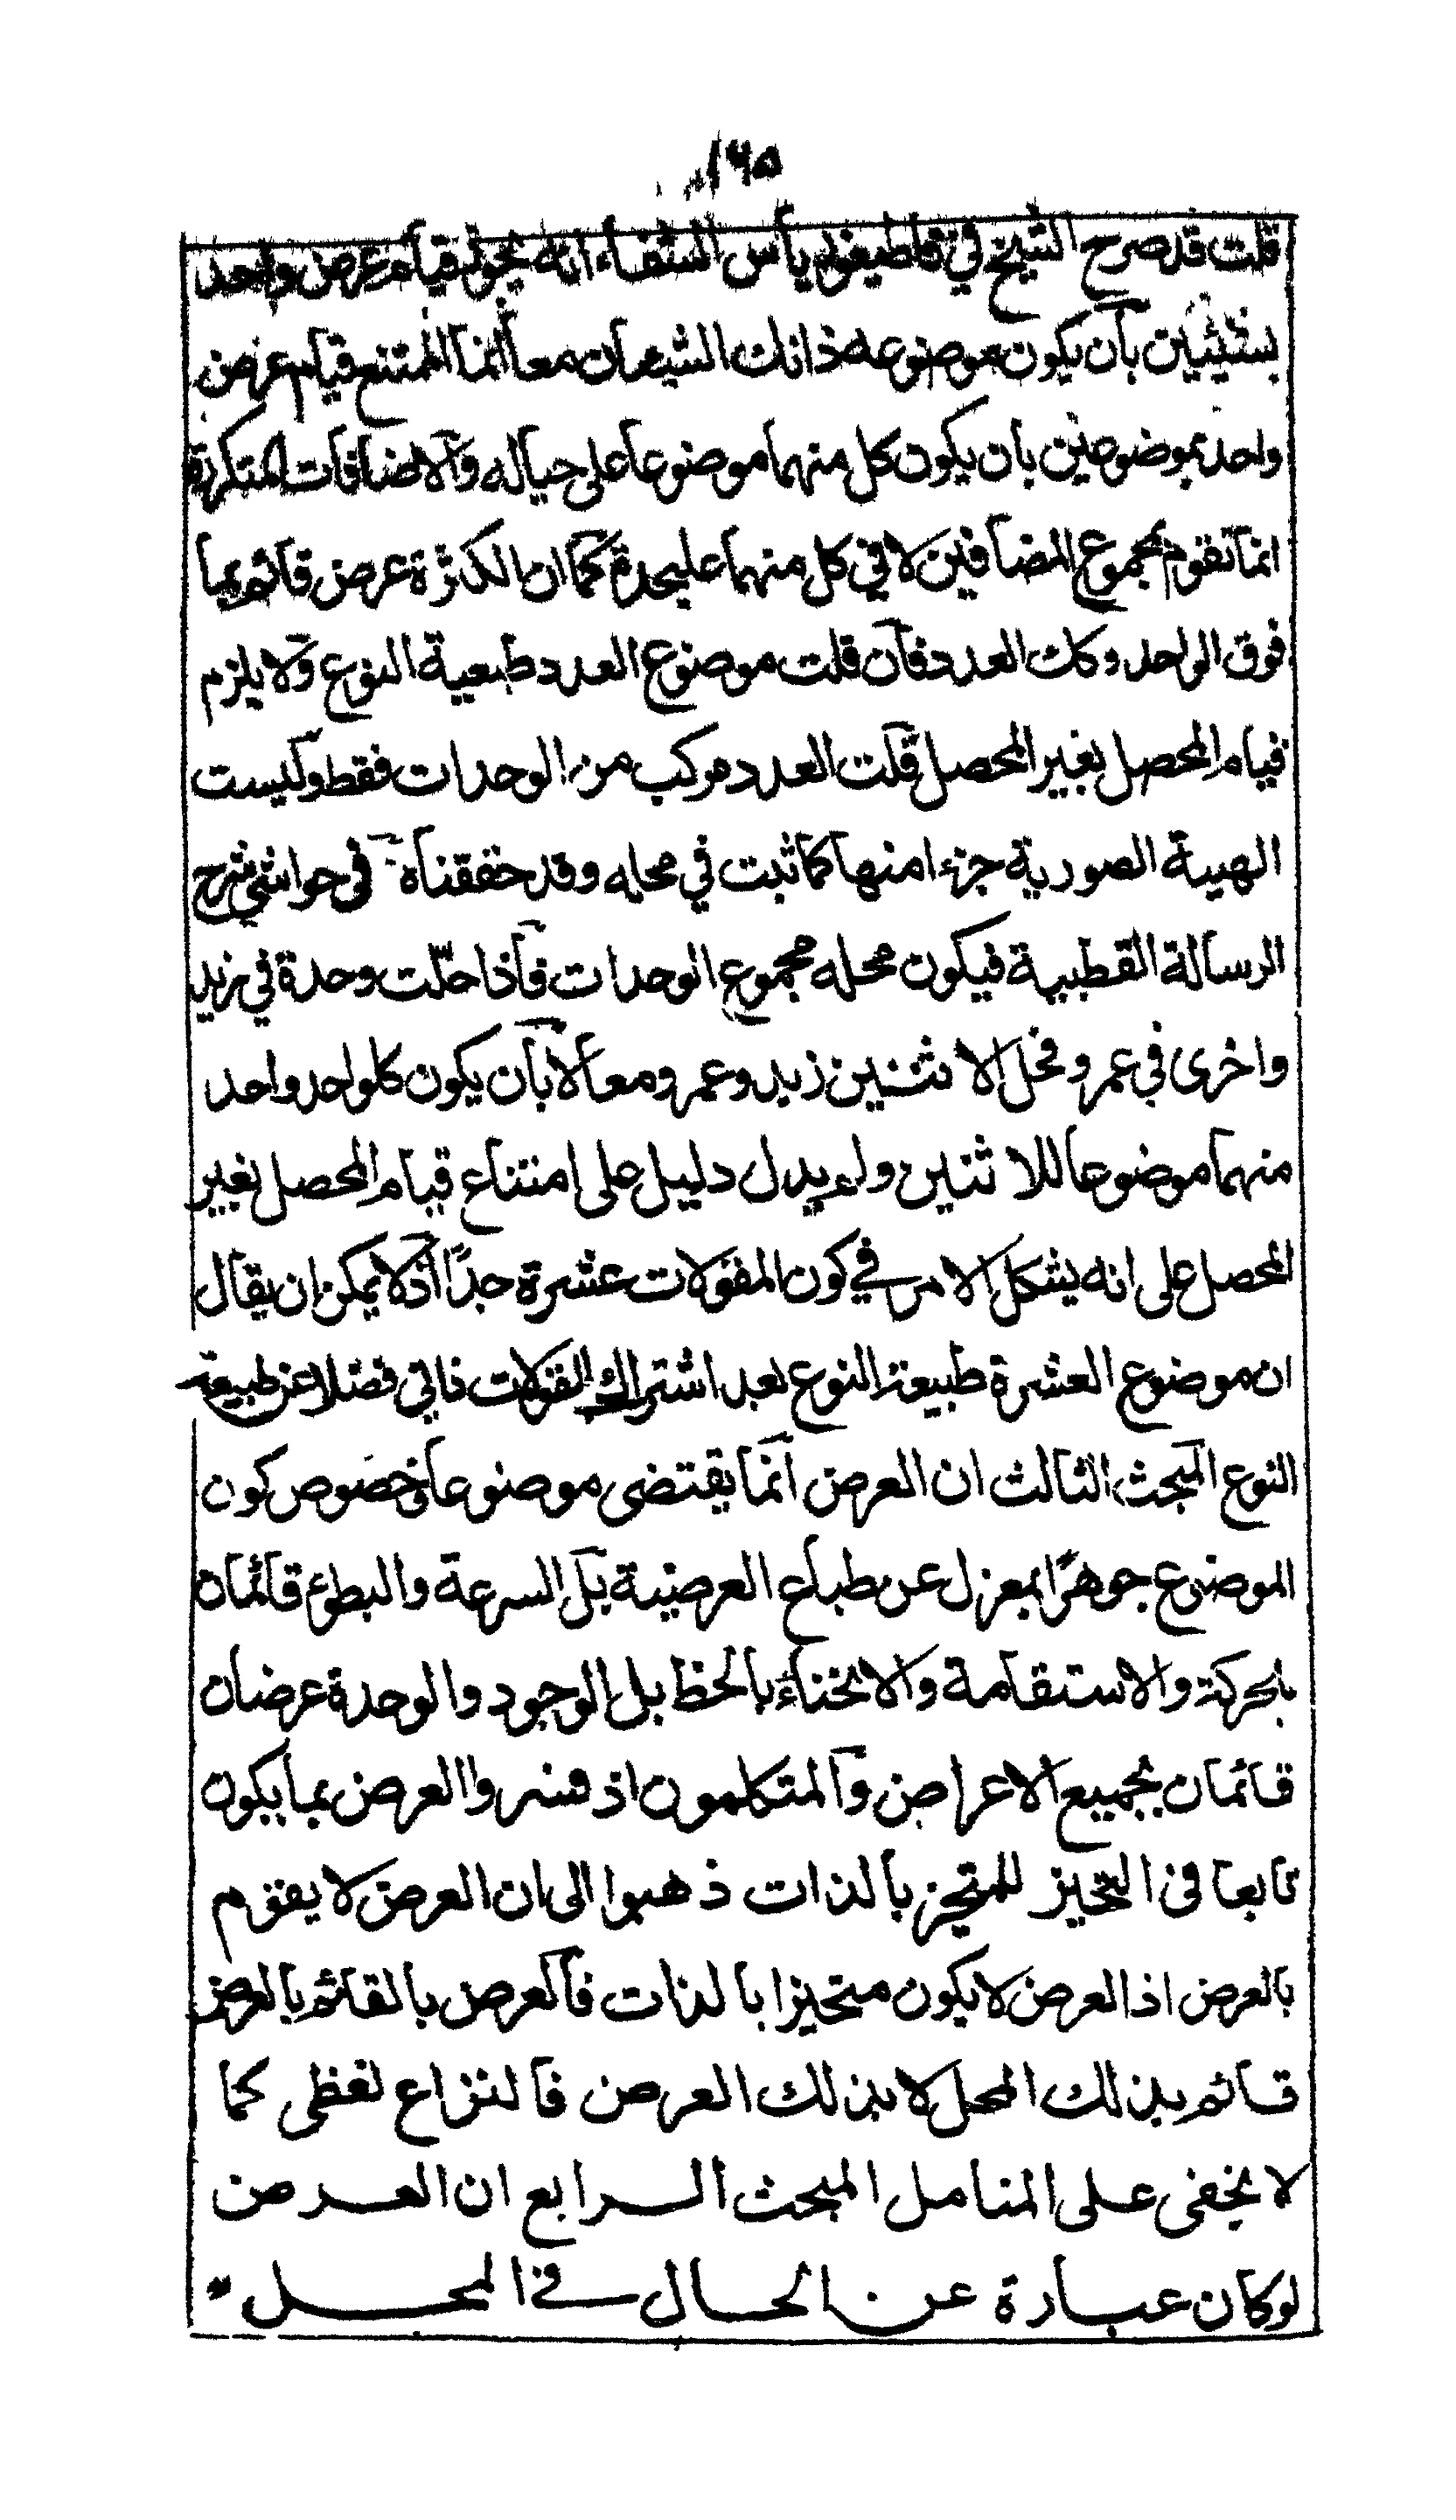 ١٦٥
قلت قد صرح الشيخ في قاطيغورياس الشفاء انه يجوز قيام عرض واحد
بشيئين بان يكون موضوعه ذانك الشيئان معا انما الممتنع قيام عرض
واحد بموضوعين بان يكون كل منهما موضوعا على حياله والاضافات المتكررة
انما تقوم بمجموع المضافين لا في كل منهما عليحدة كما ان الكثرة عرض قائم بما
فوق الواحد وكك العدد فان قلت موضوع العدد طبعية النوع ولا يلزم
قيام المحصل بغير المحصل قلت العدد مركب من الوحدات فقط وليست
الهيية الصورية جزءا منها كما ثبت في محله وقد حققناه في حواشي شرح
الرسالة القطبية فيكون محله مجموع الوحدات فاذا حلّت وحدة في زيد
واخرى في عمرو فمحل الاثنين زيد وعمرو معا لا بان يكون كلواحد واحد
منهما موضوعا للاثنين ولم يدل دليل على امتناع قيام المحصل بغير
المحصل على انه يشكل الامر في كون المقولات عشرة جدًا اذ لا يمكن ان يقال
ان موضوع العشرة طبيعة النوع لعدم اشتراك المقولات ذاتي فضلا عن طبيعة
النوع المبحث الثالث ان العرض انما يقتضى موضوعا خصوص كون
الموضوع جوهرًا بمعزل عن طباع العرضية بل السرعة والبطوء قائمان
بالحركة والاستقامة والانحناء بالخط بل الوجود والوحدة عرضان
قائمان بجميع الاعراض والمتكلمون اذ فسروا العرض بما يكون
تابعا في التحيز للمتحيز بالذات ذهبوا الى ان العرض لا يقوم
بالعرض اذ العرض لا يكون متحيزا بالذات فالعرض بالقائم بالعرض
قائم بذلك المحل لا بذلك العرض فالنزاع لفظى كما
لا يخفى على المتامل المبحث الرابع ان العرض
لو كان عبارة عن الحال في المحل